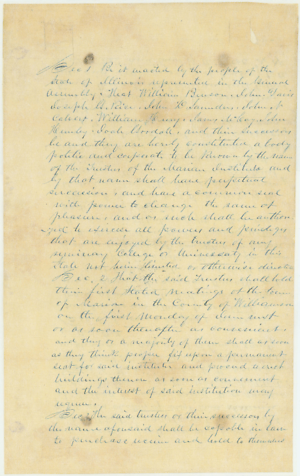 Sec 1 Be it enacted by the people of the
State of Illinois represented in the General
Assembly, That William Benson John Davis
Joseph H. John D. Saunders John N.
William James
Hendley Noah and their successors
be and they are hereby constituted a body
politic and corporate to be known by the name
of the Trustees of the Marion Institute and
by that name shall have perpetual
succession and have a common seal
with power to change the same at
pleasure and as such shall be author
ized to exercise all powers and privileges
that are enjoyed by the trustees of any
Seminary College or University in this
State not herein limited or otherwise directed
Sec. 2 That the said Trustees shall hold
their first stated meeting at the town
of Marion in the County of Williamson
on the first Monday of June next
or as soon thereafter as convenient
and they or a majority of them shall as soon
as they think proper fix upon a permanent
seat for said institute and proceed to erect
buildings thereon as soon as convenient
and the interest of said institution may
require
Sec 3 The said trustees or their successors by
the name aforesaid shall be capable in law
to purchase receive and hold to themselves